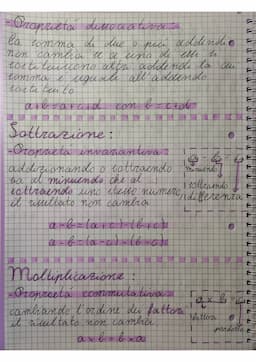 -Proprietà dissociativa:
la somma di due o più addendi
non cambia se a uno di essi si
sostituiscono altri addendi la cui
somma è uguale all'addendo
sostituito
a+b=a+c+d con b=c+d
Sottrazione:
-Proprietà invariantiva:
addizionando o sottraendo
sia al minuendo che al
sottraendo uno stesso numero,
il risultato non cambia
a-b=(a+c)-(b+c)
a-b=(a-c)-(b-c)
a - b = c
minuendo
sottraendo
differenza
Moltiplicazione:
-Proprietà commutativa:
cambiando l'ordine dei fattori
il risultato non cambia
a×b=b×a
a × b =
fattori
prodotto